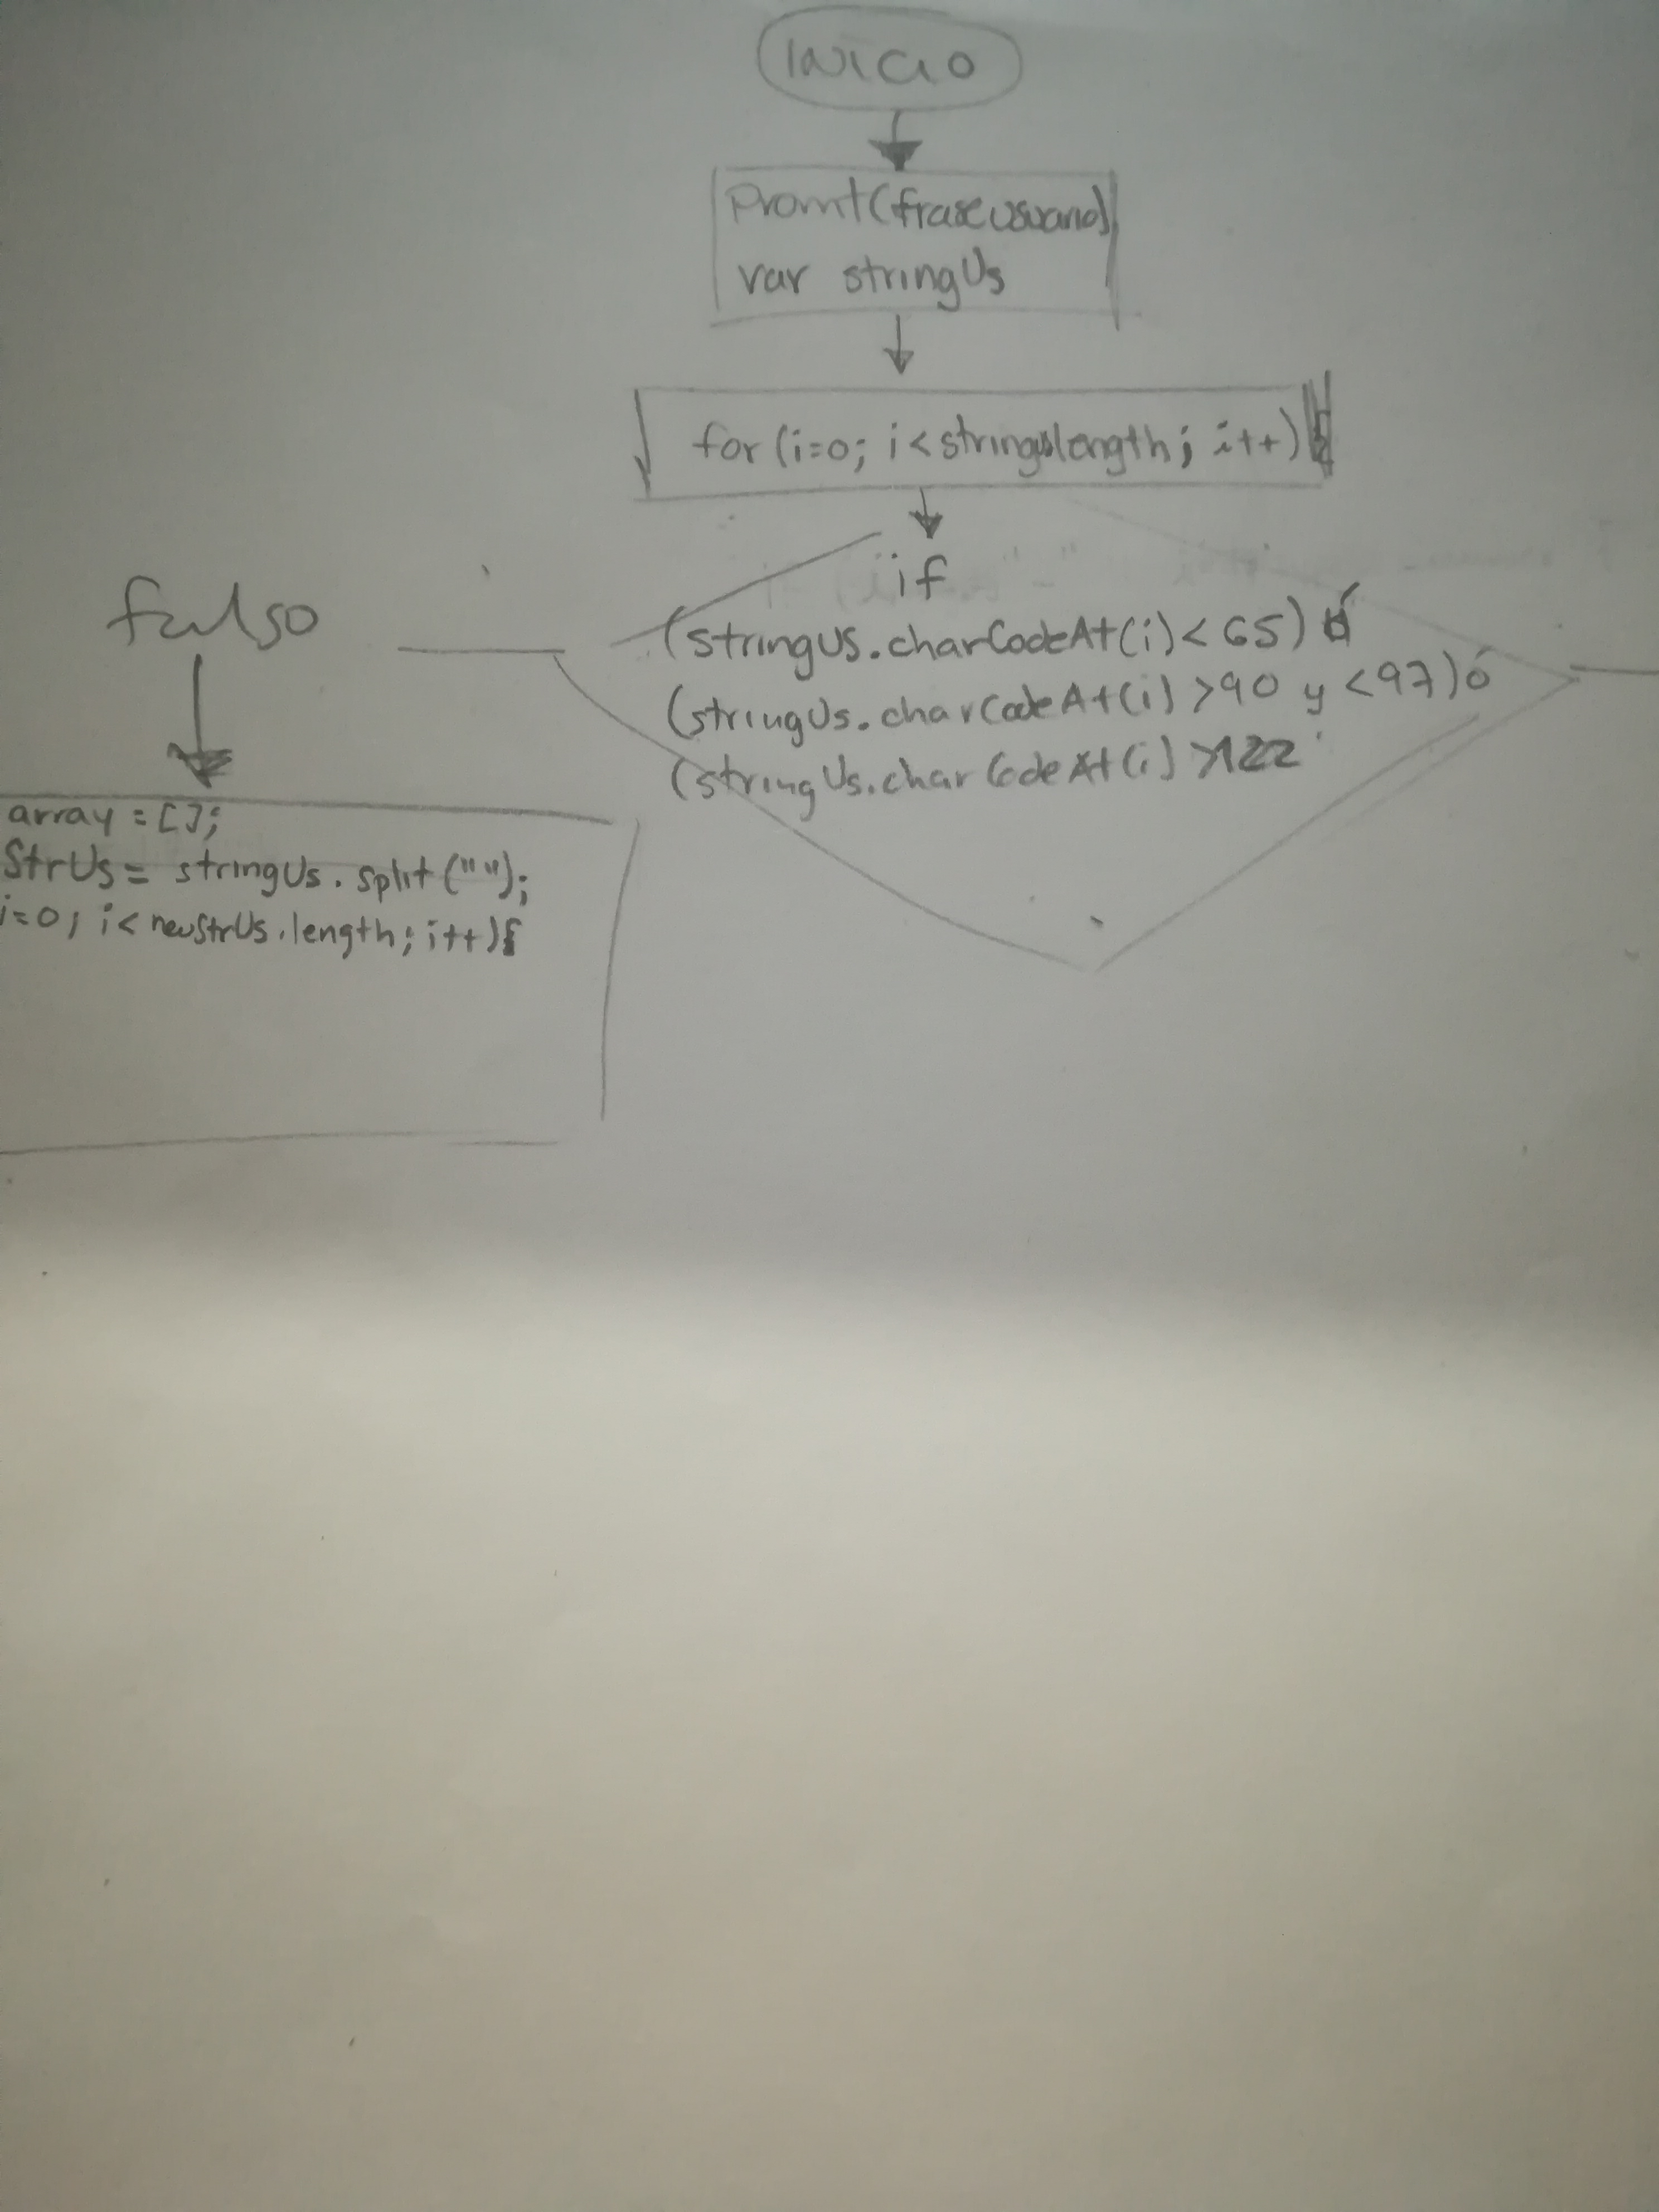 INICIO
Promt(fraseusuario)
var stringUs
for (i=0; i<stringUslength; i++)
if
(stringUs.charCodeAt(i)<65) ó
(stringUs.charCodeAt(i)>90 y <97) ó
(stringUs.charCodeAt(i)>122
falso
array = [];
StrUs = stringUs.split("");
i=0; i< newStrUs.length; i++){